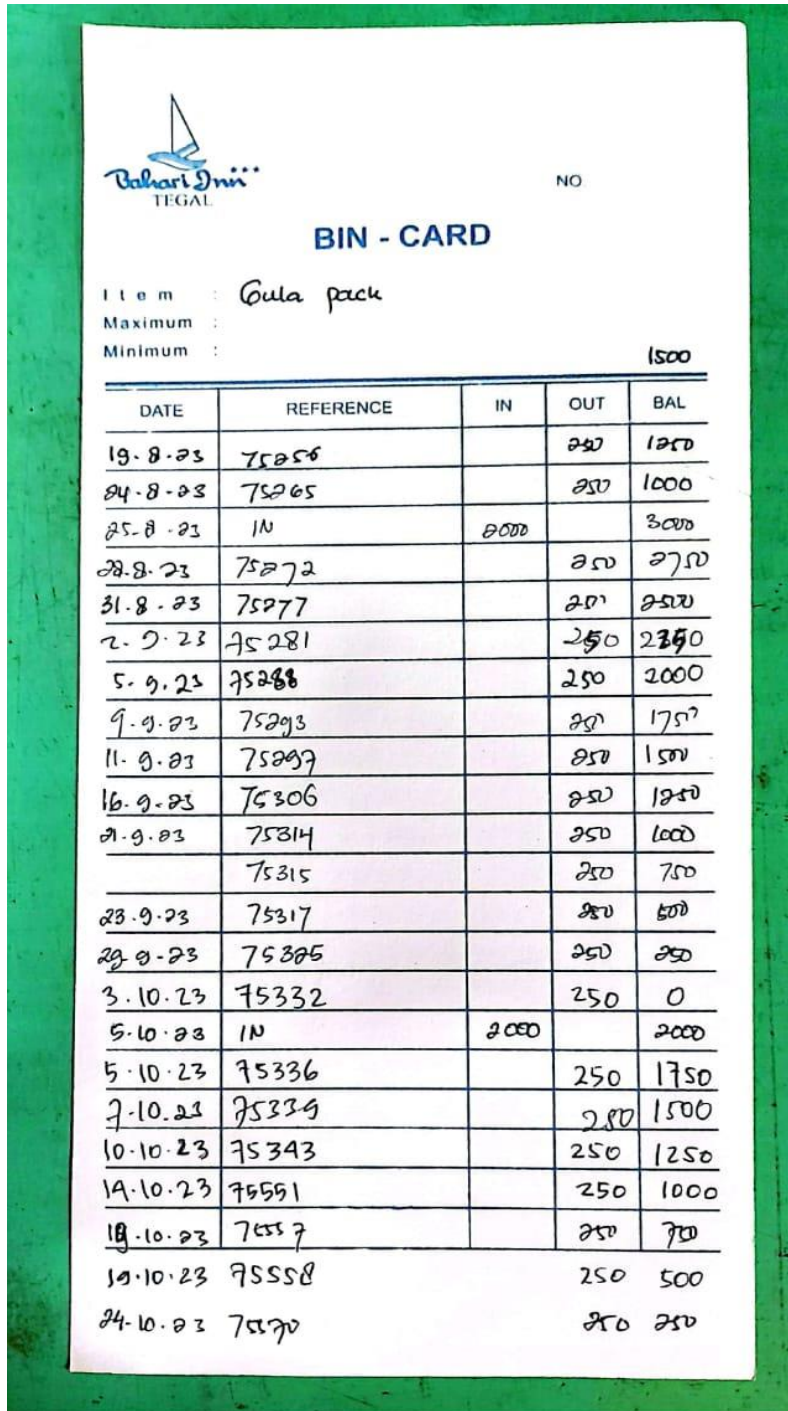 Bahari Inn ***
TEGAL
NO
BIN - CARD
Item : Gula pack
Maximum :
Minimum :
1500
DATE REFERENCE IN OUT BAL
19.8.23 75256 250 1250
24.8.23 75265 250 1000
25-8.23 IN 2000 3000
28.8.23 75272 250 2750
31.8.23 75277 250 2500
2.9.23 75281 250 2250
5.9.23 75288 250 2000
9.9.23 75293 250 1750
11.9.23 75297 250 1500
16.9.23 75306 250 1250
21.9.23 75314 250 1000
75315 250 750
23.9.23 75317 250 500
29.9.23 75325 250 250
3.10.23 75332 250 0
5.10.23 IN 2000 2000
5.10.23 75336 250 1750
7.10.23 75339 250 1500
10.10.23 75343 250 1250
14.10.23 75551 250 1000
18.10.23 75557 250 750
19.10.23 75558 250 500
24.10.23 75570 250 250